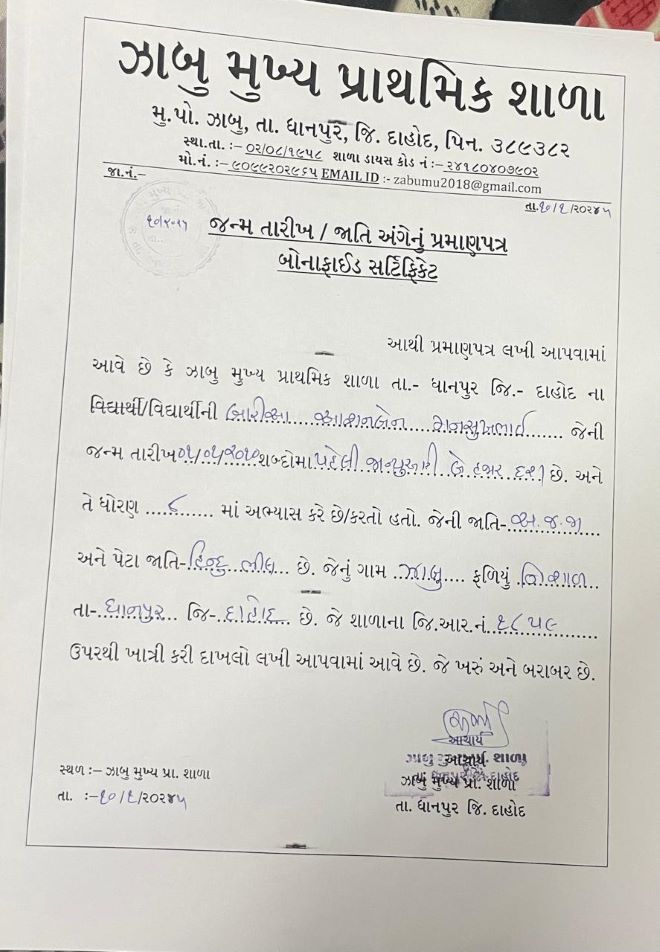 ઝાબુ મુખ્ય પ્રાથમિક શાળા
મુ.પો. ઝાબુ, તા. ધાનપુર, જિ. દાહોદ, પિન. ૩૮૯૩૮૨
સ્થા.તા. :- ૦૨/૦૮/૧૯૫૮ શાળા ડાયસ કોડ નં :- ૨૪૧૮૦૪૦૭૯૦૨
મો.નં. :- ૯૦૯૯૨૦૨૯૬૫ EMAIL ID :- zabumu2018@gmail.com
જા.નં.-
તા.૧૦/૬/૨૦૨૪૫
જન્મ તારીખ / જાતિ અંગેનું પ્રમાણપત્ર
બોનાફાઈડ સર્ટિફિકેટ
આથી પ્રમાણપત્ર લખી આપવામાં
આવે છે કે ઝાબુ મુખ્ય પ્રાથમિક શાળા તા.- ધાનપુર જિ.- દાહોદ ના
વિદ્યાર્થી/વિદ્યાર્થીની બારીઆ મનસુખભાઈ જેની
જન્મ તારીખ ૦૧/૦૧/૨૦૧૦ શબ્દોમા પહેલી જાન્યુઆરી બે હજાર દસ છે. અને
તે ધોરણ ૮ માં અભ્યાસ કરે છે/કરતો હતો. જેની જાતિ- અ.જ.જા
અને પેટા જાતિ- હિન્દુ ભીલ છે. જેનું ગામ ઝાબુ ફળિયું નિશાળ
તા- ધાનપુર જિ- દાહોદ છે. જે શાળાના જિ.આર.નં. ૧૮૫૯
ઉપરથી ખાત્રી કરી દાખલો લખી આપવામાં આવે છે. જે ખરું અને બરાબર છે.
આચાર્ય
સ્થળ :- ઝાબુ મુખ્ય પ્રા. શાળા
ઝાબુ મુખ્ય પ્રા. શાળા
તા. :- ૧૦/૬/૨૦૨૪૫
તા. ધાનપુર જિ. દાહોદ